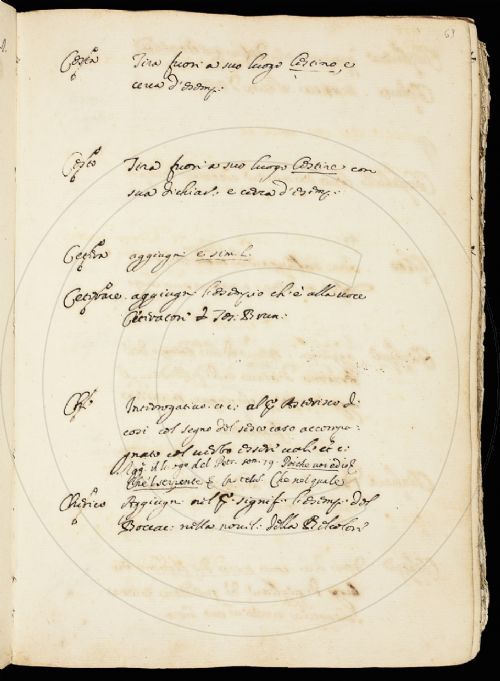 69
Cesta Tira fuori a suo luogo Cestino, e
cerca d'esemp.
Cesto Tira fuori a suo luogo Cestire con
sua dichiar. e cerca d'esemp.
Cetera aggiugni e simil.
Ceterare aggiugni l'esempio ch'è alla voce
Ceterator di Tes. Brun.
Che Interrogativo et c. al § Asterisco di
così col segno del sesto caso accompa-
gnato col verbo essere vale et c.
Agg. il luogo del Petr. son. 79. Poiché
Che'l serpente
Chierico Aggiugni nel § signif. l'esemp. del
Boccac. nella novel. della Belcolore